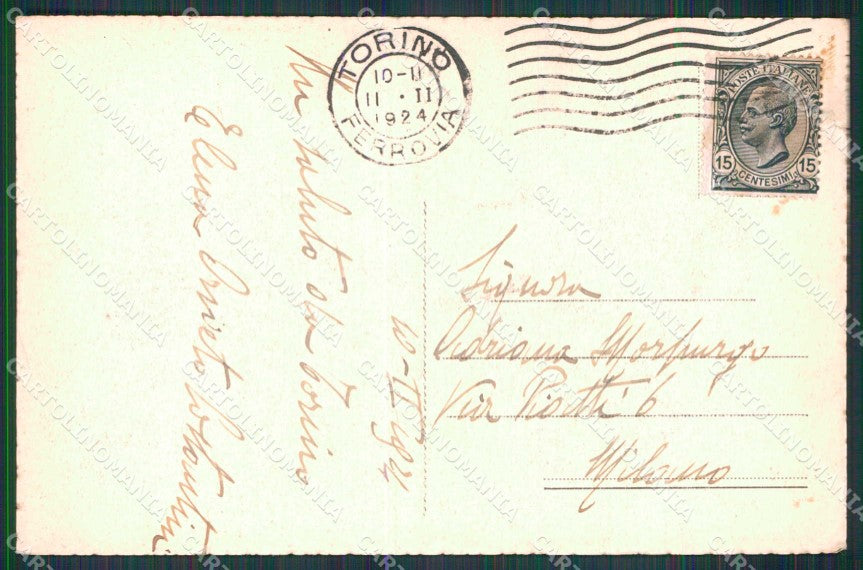 TORINO
10-11
11 · II
1924
FERROVIA
POSTE ITALIANE
15 15
CENTESIMI
Un saluto da Torino
10-II 1924
Elena
Signora
Adriana Morpurgo
Via 6
Milano
CARTOLINOMANIA